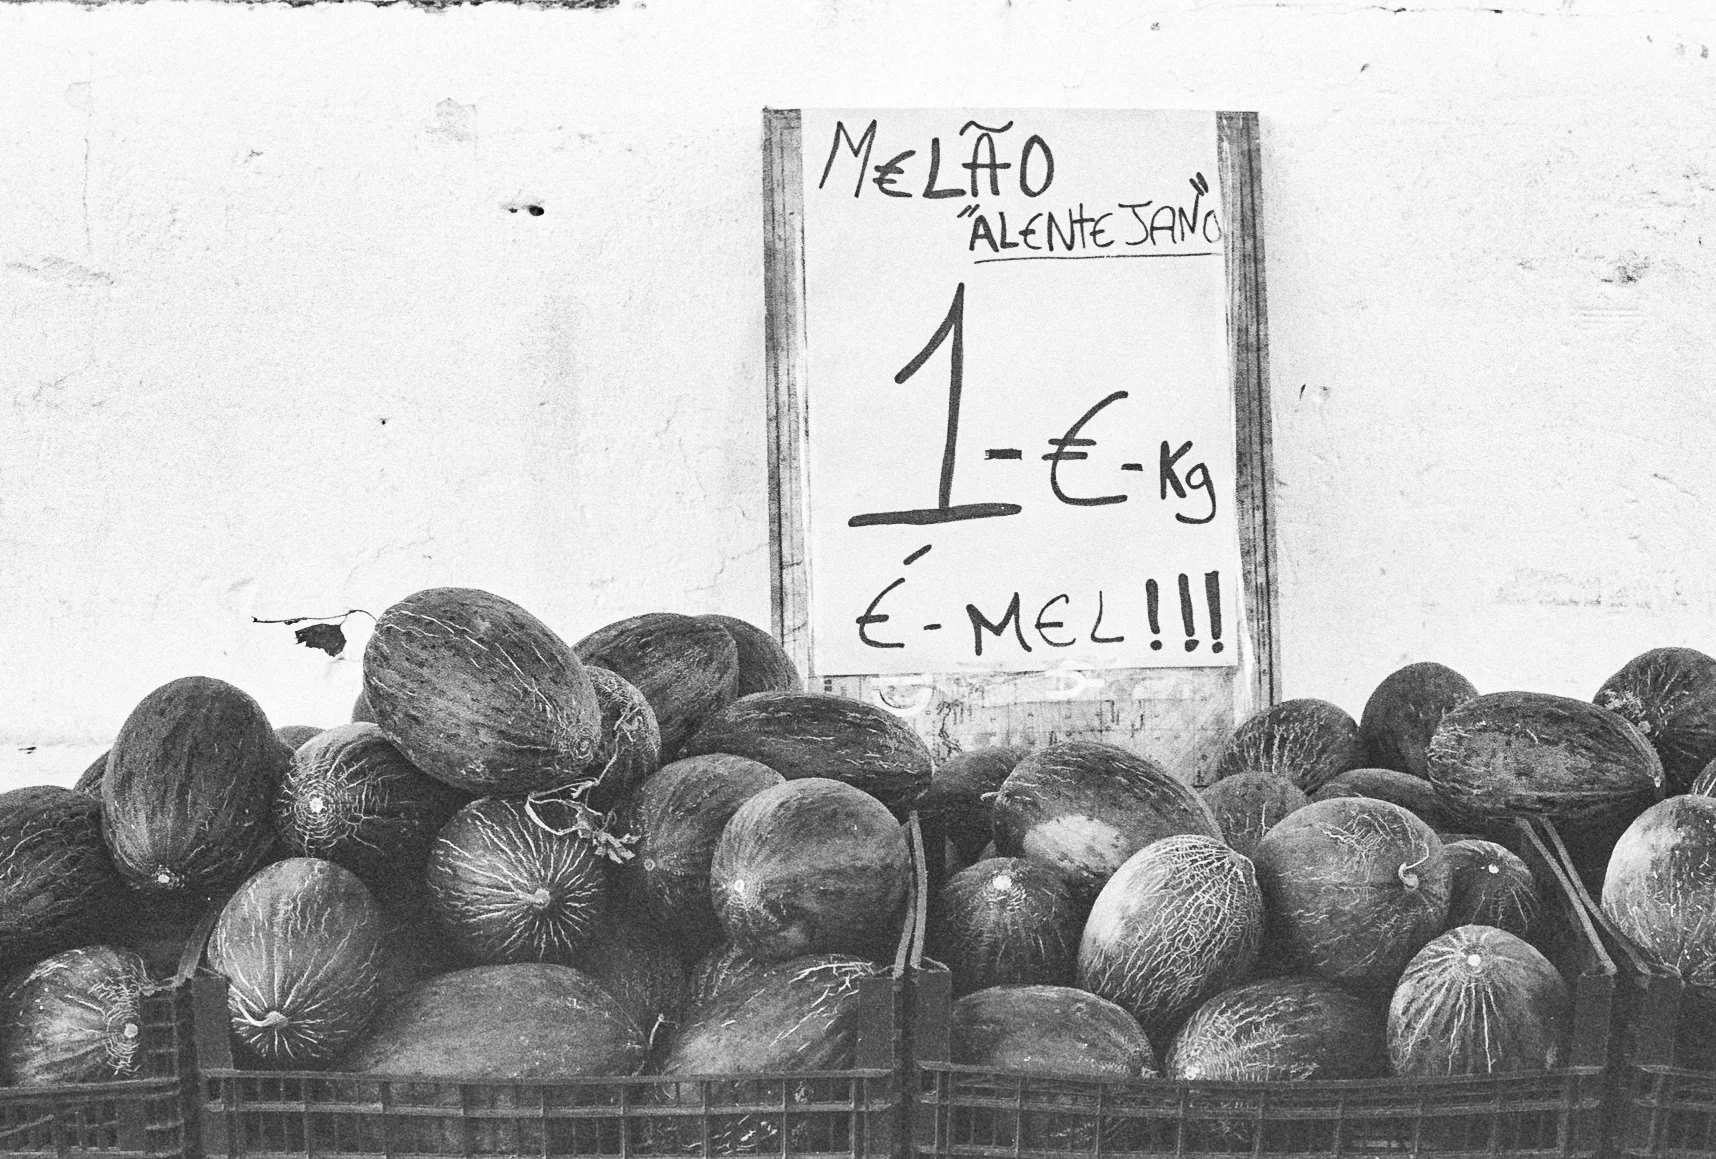 MELÃO
"ALENTEJANO"
1-€-Kg
É-MEL!!!